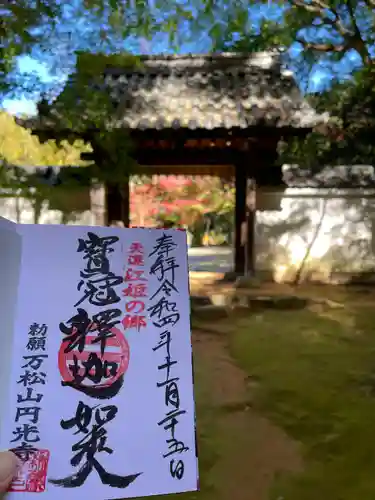 奉拝 令和四年十一月二十五日
天選 紅姫の郷
寶冠釋迦如来
勅願 万松山円光寺